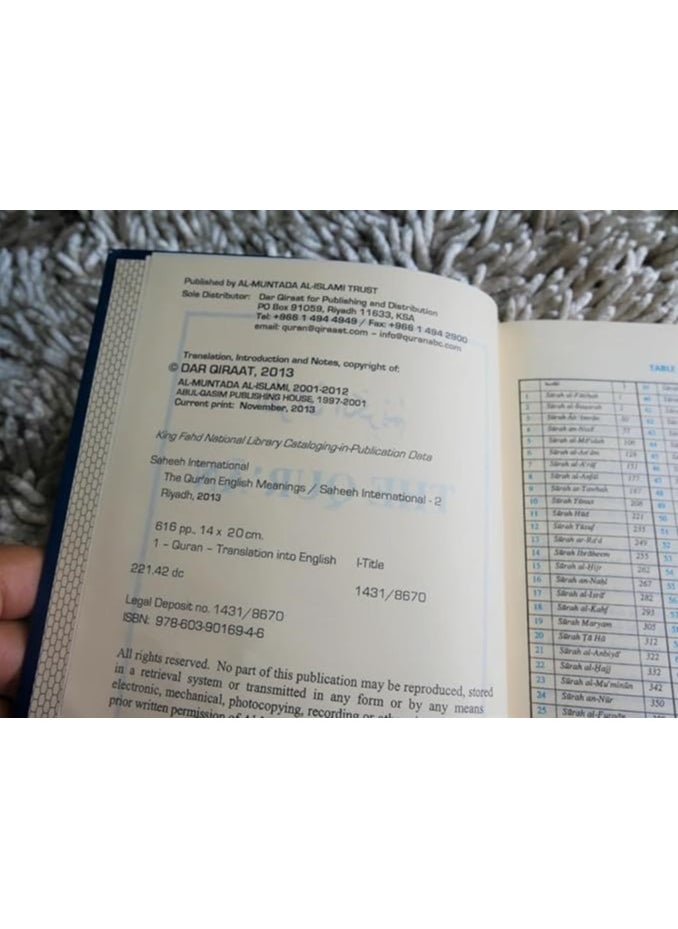 Published by AL-MUNTADA AL-ISLAMI TRUST
Sole Distributor: Dar Qiraat for Publishing and Distribution
PO Box 91059, Riyadh 11633, KSA
Tel: +966 1 494 4949 / Fax: +966 1 494 2900
email: quran@qiraaat.com – info@quranabc.com
Translation, Introduction and Notes, copyright of:
© DAR QIRAAT, 2013
AL-MUNTADA AL-ISLAMI, 2001-2012
ABUL-QASIM PUBLISHING HOUSE, 1997-2001
Current print: November, 2013
King Fahd National Library Cataloging-in-Publication Data
Saheeh International
The Qur'an English Meanings / Saheeh International - 2
Riyadh, 2013
616 pp., 14 x 20 cm.
1 – Quran – Translation into English I-Title
221.42 dc 1431/8670
Legal Deposit no. 1431/8670
ISBN: 978-603-90169-4-6
All rights reserved. No part of this publication may be reproduced, stored
in a retrieval system or transmitted in any form or by any means
electronic, mechanical, photocopying, recording or
prior written permission of
TABLE
1 Sūrah al-Fātiḥah 1
2 Sūrah al-Baqarah 2
3
4 Sūrah an-Nisā'
5 Sūrah al-Mā'idah 106
6 Sūrah al-An'ām 128
7 Sūrah al-A'rāf 151
8 Sūrah al-Anfāl 177
9 Sūrah at-Tawbah 187
10 Sūrah Yūnus 208
11 Sūrah Hūd 221 50
12 Sūrah Yūsuf 235 51
13 Sūrah ar-Ra'd 249 52
14 Sūrah Ibrāheem 255 53
15 Sūrah al-Ḥijr 262 54
16 Sūrah an-Naḥl 267 55
17 Sūrah al-Isrā' 282 56
18 Sūrah al-Kahf 293
19 Sūrah Maryam 305
20 Sūrah Ṭā Hā 312
21 Sūrah al-Anbiyā' 322
22 Sūrah al-Ḥajj 332
23 Sūrah al-Mu'minūn 342
24 Sūrah an-Nūr 350
25 Sūrah al-Furqān